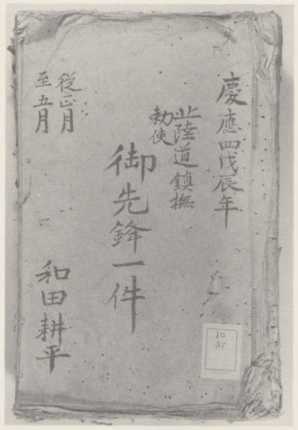 慶應四戊辰年
北陸道鎮撫
勅使
御先鋒一件
従正月
至五月
和田耕平